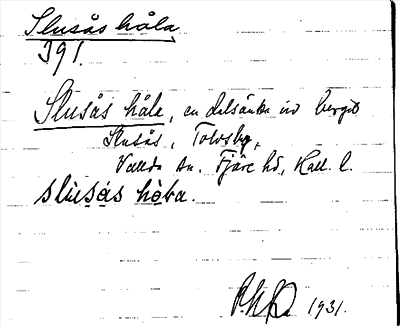 Slusås håla
391.
Slusås håla, en dalsänka vid berget
Slusås, Tolvsby,
Vallda sn. Fjäre hd, Hall. l.
slùsås hòla.
1931.